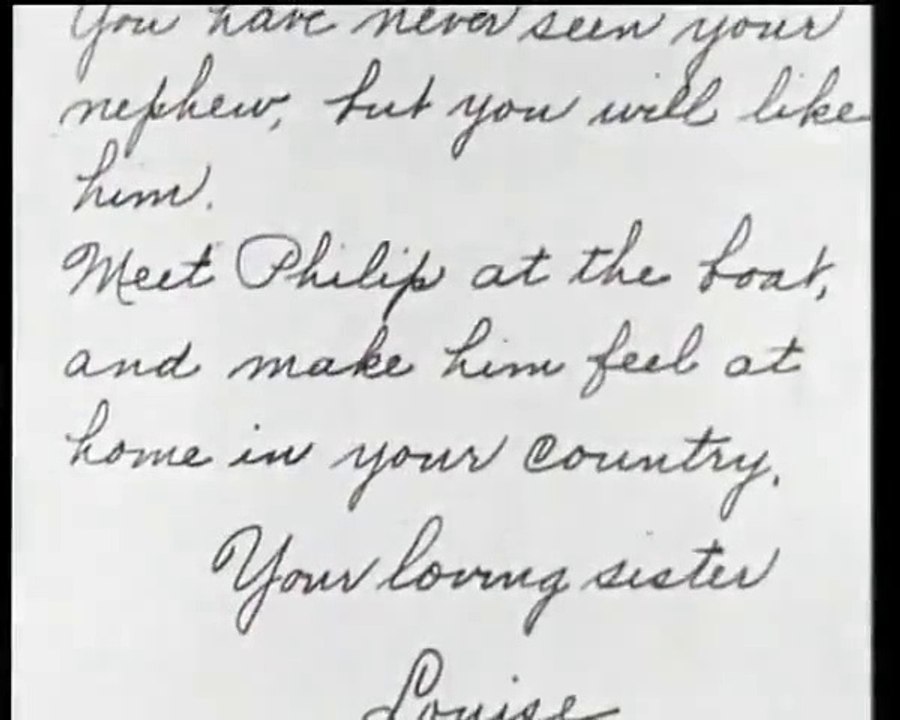 You have never seen your
nephew, but you will like
him.
Meet Philip at the boat,
and make him feel at
home in your country.
Your loving sister
Louise